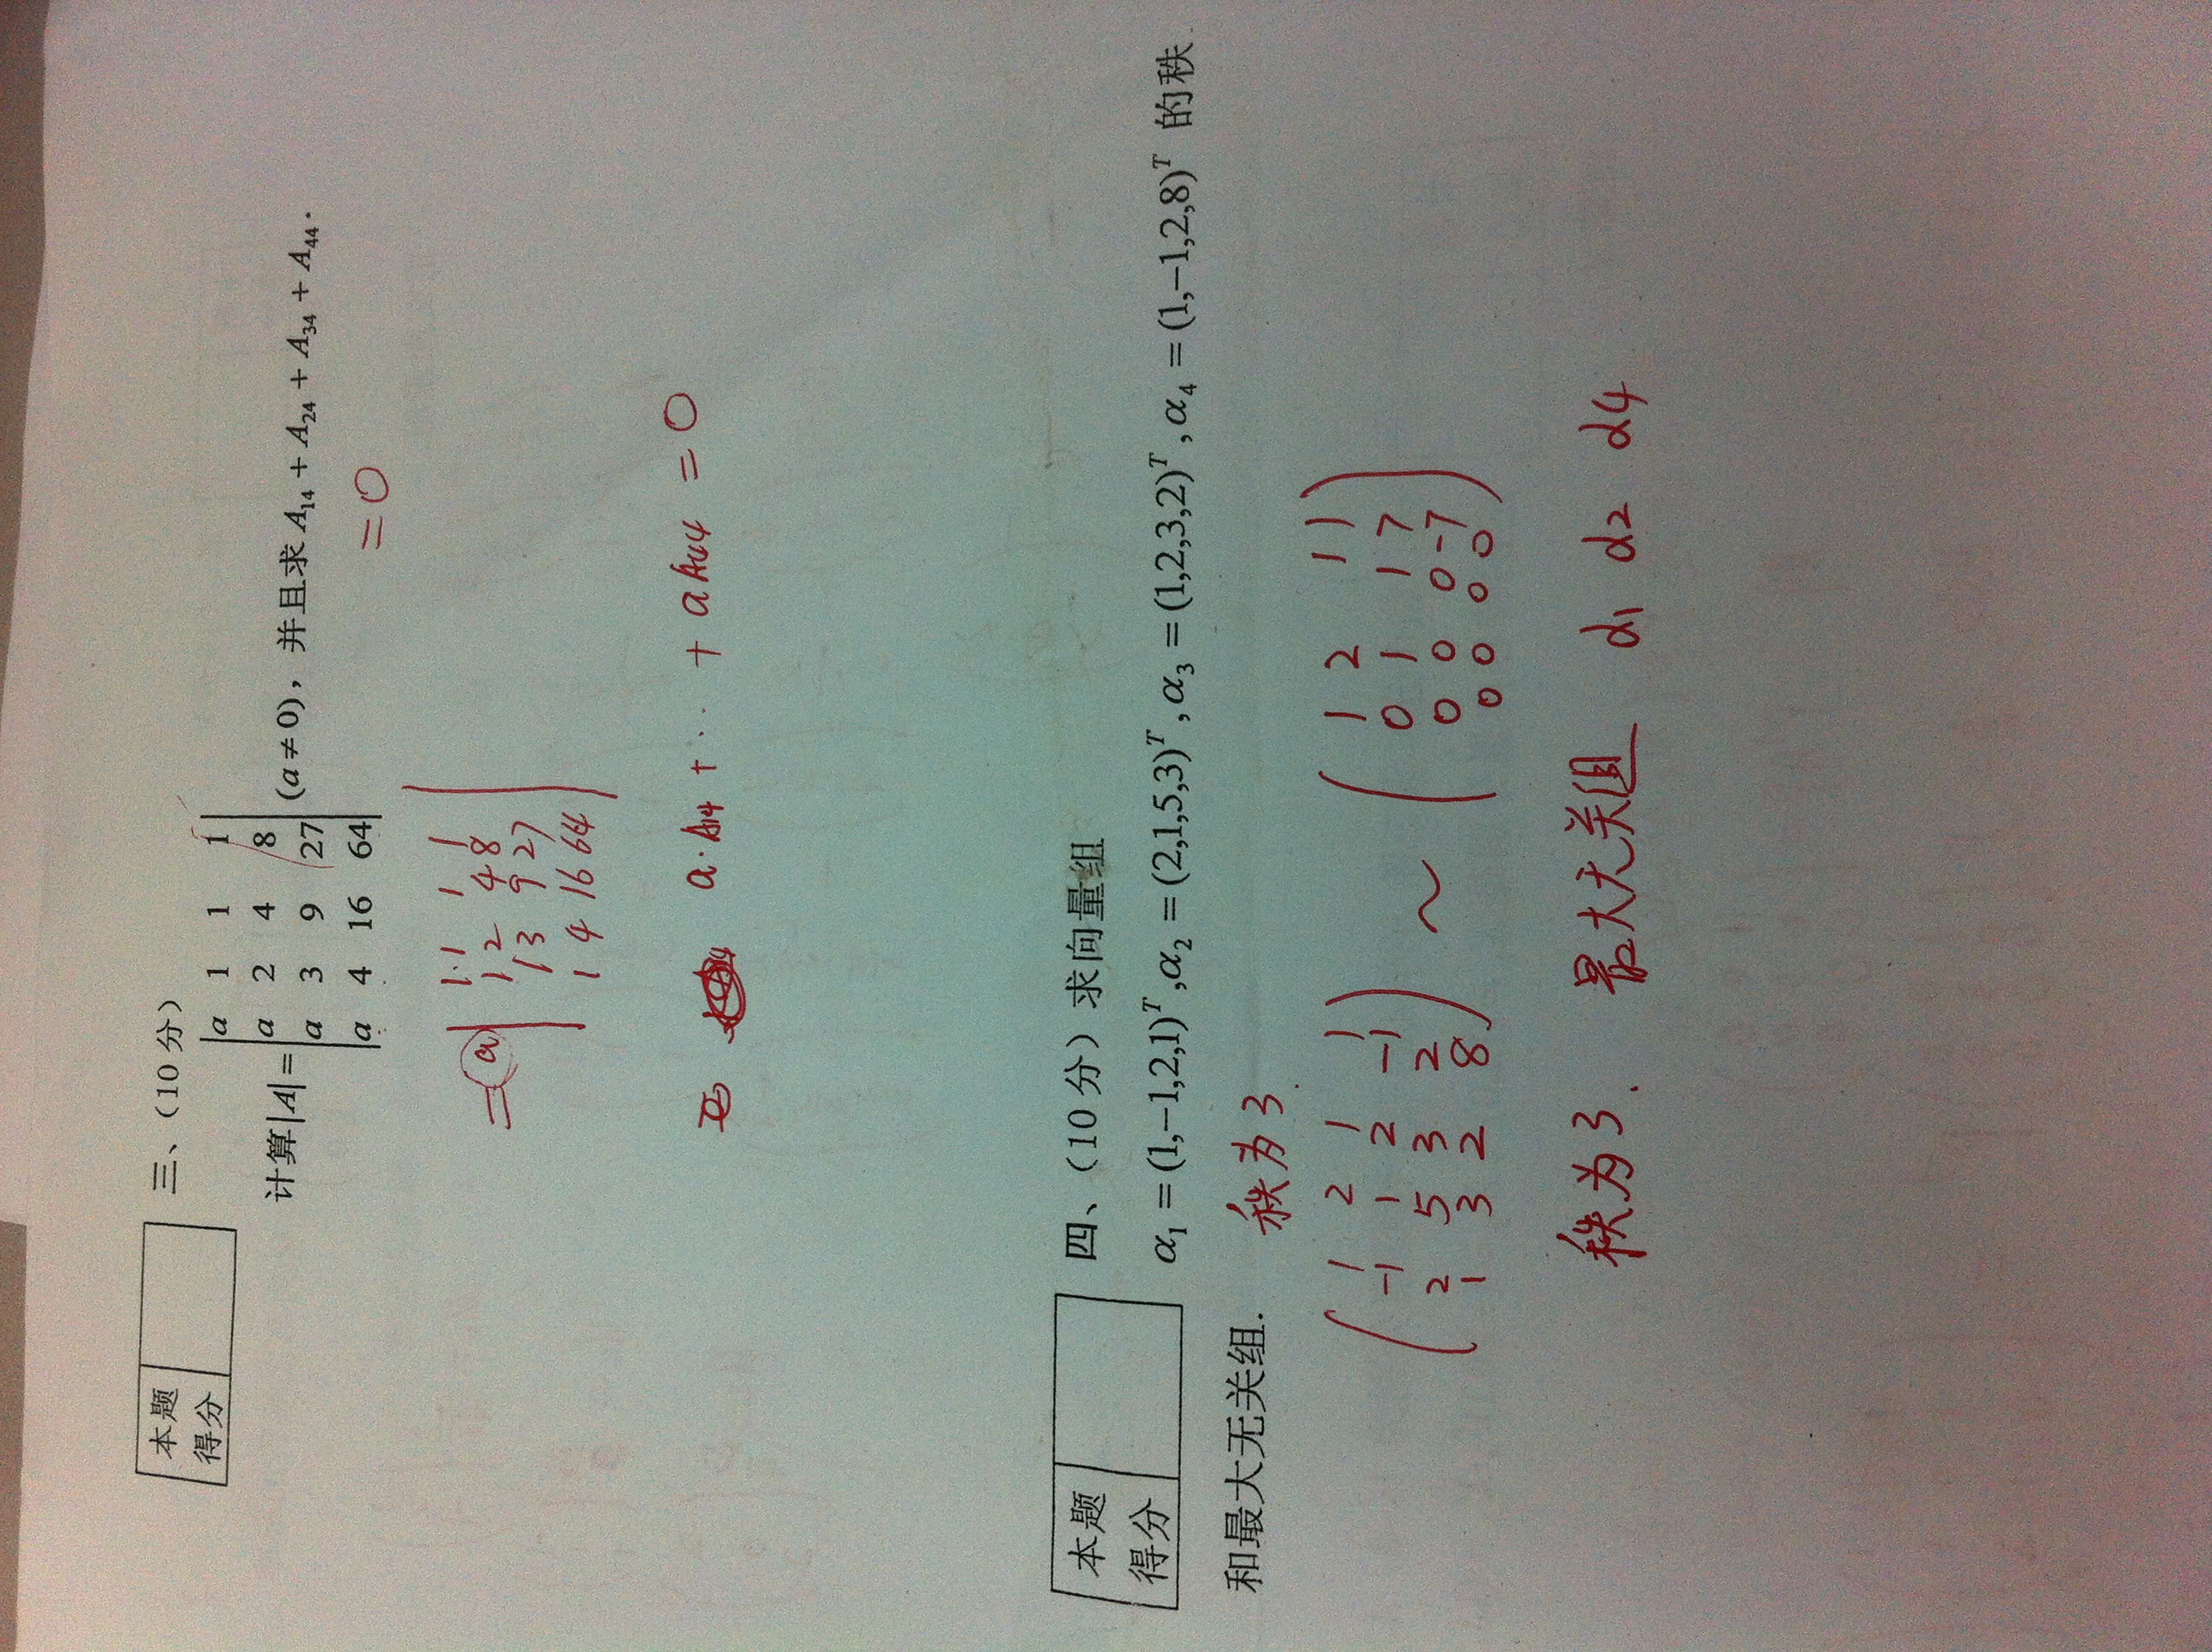 本题
得分
三、（10 分）
计算|A|=
a 1 1 1
a 2 4 8
a 3 9 27
a 4 16 64
(a≠0)，并且求 A₁₄ + A₂₄ + A₃₄ + A₄₄.
=0
=a
1 1 1 1
1 2 4 8
1 3 9 27
1 4 16 64
a·A₁₄ + ·· + aA₄₄ = 0
本题
得分
四、（10 分）求向量组
α₁ = (1,−1,2,1)ᵀ,α₂ = (2,1,5,3)ᵀ,α₃ = (1,2,3,2)ᵀ,α₄ = (1,−1,2,8)ᵀ 的秩
和最大无关组.
秩为3
1 2 1 1
-1 1 2 -1
2 5 3 2
1 3 2 8
~
1 2 1 1
0 1 1 7
0 0 0 -7
0 0 0 0
秩为3. 最大无关组 α₁ α₂ α₄